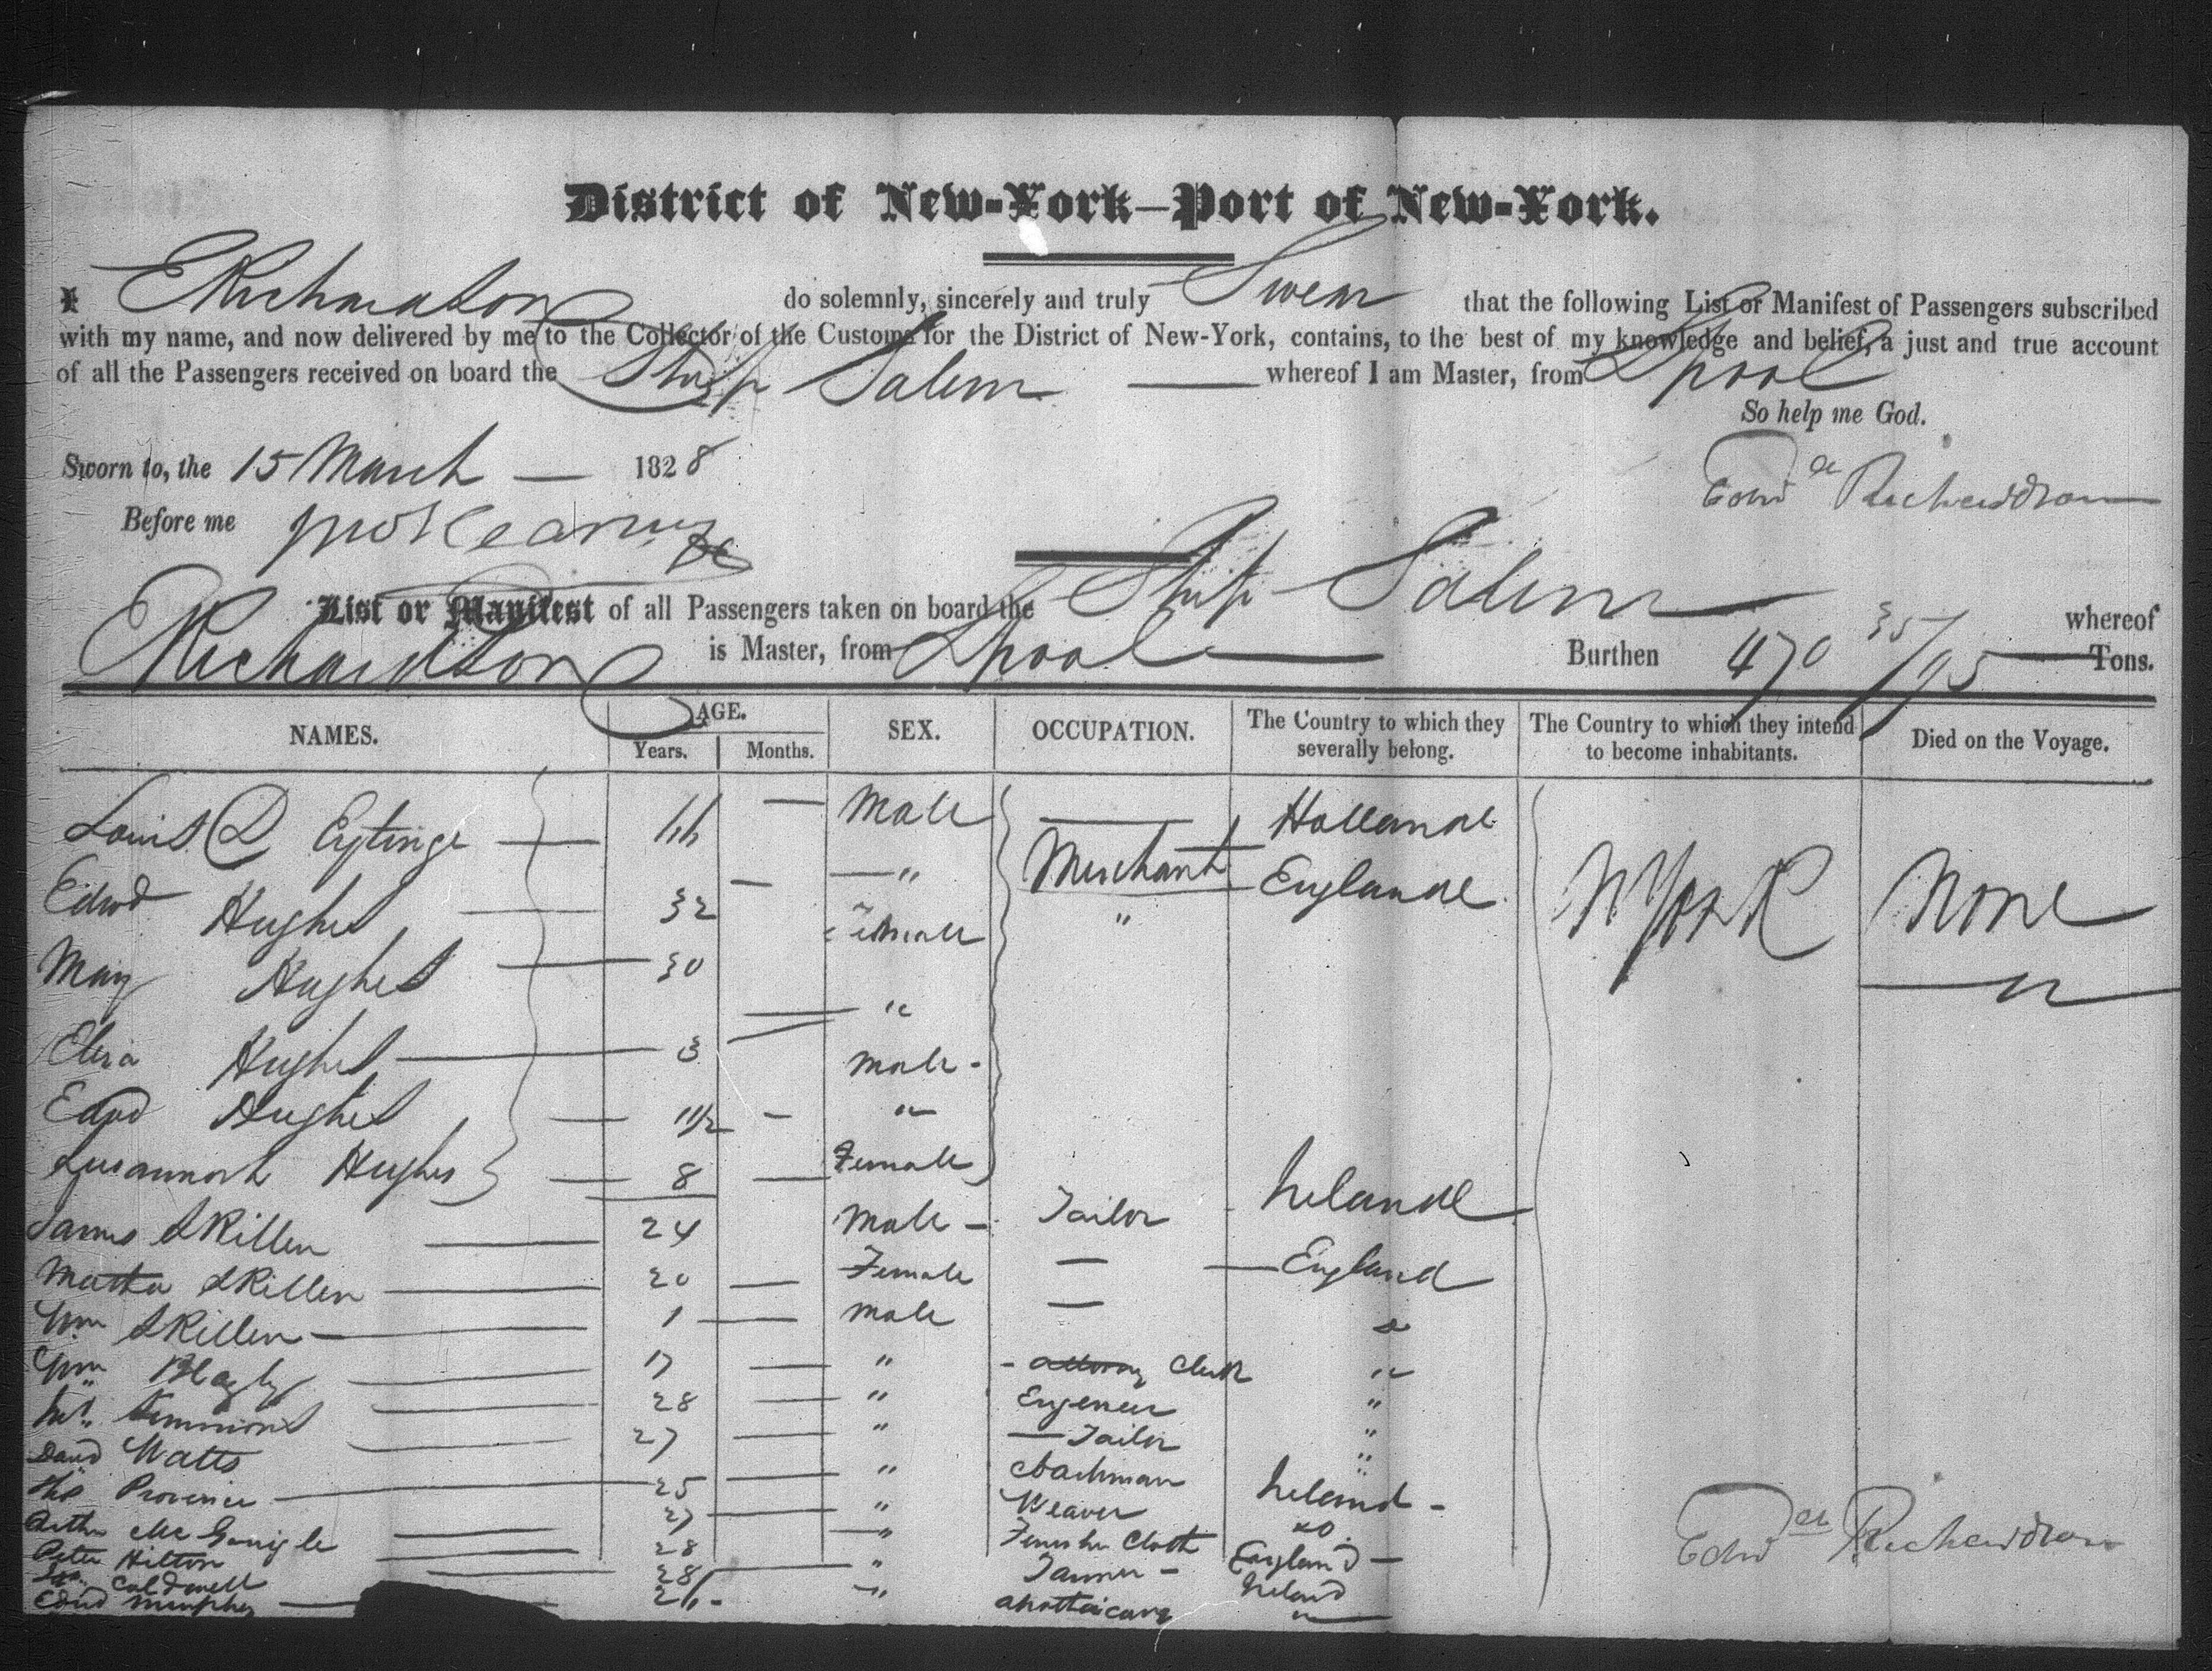 District of New-York—Port of New-York.
I E Richardson do solemnly, sincerely and truly Swear that the following List or Manifest of Passengers subscribed
with my name, and now delivered by me to the Collector of the Customs for the District of New-York, contains, to the best of my knowledge and belief, a just and true account
of all the Passengers received on board the Ship Salem whereof I am Master, from Lpool
So help me God.
Sworn to, the 15 March — 1828
Edwd Richardson
Before me
List or Manifest of all Passengers taken on board the Ship Salem whereof
E Richardson is Master, from Lpool — Burthen 470 35/95 Tons.
NAMES. AGE. Years. Months. SEX. OCCUPATION. The Country to which they severally belong. The Country to which they intend to become inhabitants. Died on the Voyage.
Louis D Eytinge — — Male — Holland
Edwd Hughes — 32 — " Merchant England N York None
Mary Hughes — 30 Female "
Eliza Hughes — 3 — "
Edwd Hughes — 1 1/2 — Male - "
Susannah Hughes — 8 — Female
James Skillen — 24 Male - Tailor Ireland
Martha Skillen — 20 — Female — England
Wm Skillen — 1 — Male —
Wm — 17 — " - attorney Clerk "
Simmons — 28 — " Engeneer "
David Watts — 27 — " — Tailor "
Thos Province — 25 — " Coachman "
Arthur McGonigle — 27 — " Weaver Ireland -
Peter Hilton — 28 — " Cloth do.
Caldwell — 28 — " Tanner - England —
Edwd Murphy — " apotticary Ireland
Edwd Richardson